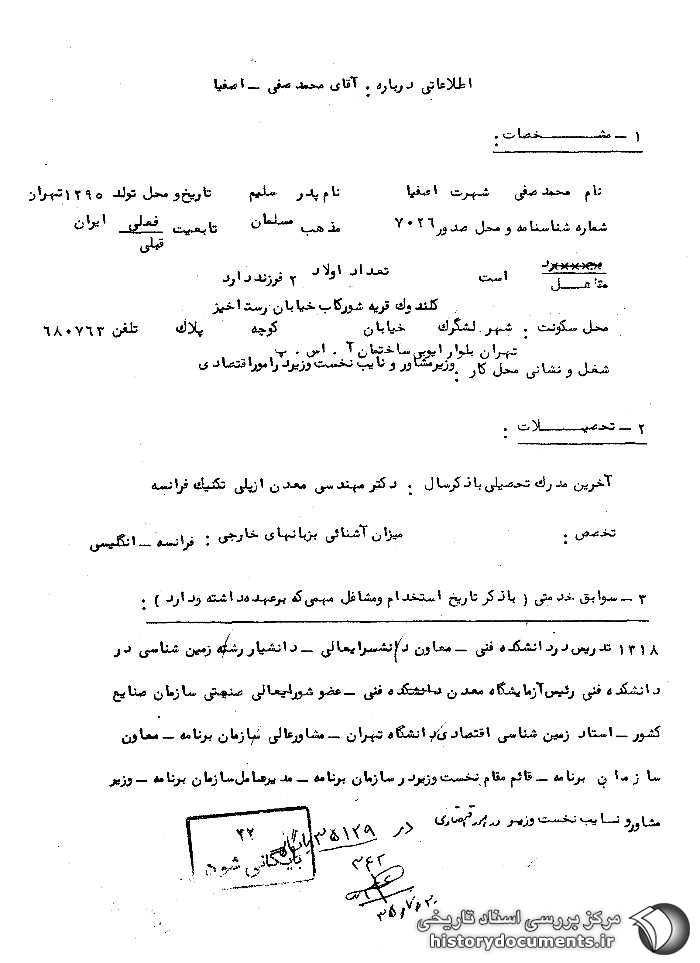 اطلاعاتی درباره : آقای محمد صفی – اصفیا
۱ – مشخصات :
نام محمد صفی شهرت اصفیا نام پدر سلیم تاریخ و محل تولد ۱۲۹۵ تهران
شماره شناسنامه و محل صدور ۷۰۲۶ مذهب مسلمان تابعیت فعلی ایران
قبلی
مجرد
متاهل است تعداد اولاد ۲ فرزند دارد
کلندوك قریه شورکاب خیابان رستاخیز
محل سکونت : شهر لشگرك خیابان کوچه پلاك تلفن ۶۸۰۷۶۳
تهران بلوار ایوبی ساختمان آ . اس . پ
شغل و نشانی محل کار : وزیر مشاور و نایب نخست وزیر در امور اقتصادی
۲ – تحصیلات :
آخرین مدرك تحصیلی با ذکر سال : دکتر مهندسی معدن از پلی تکنیك فرانسه
تخصص : میزان آشنائی بزبانهای خارجی : فرانسه – انگلیسی
۳ – سوابق خدمتی ( با ذکر تاریخ استخدام و مشاغل مهمی که بر عهده داشته و دارد ) :
۱۳۱۸ تدریس در دانشکده فنی – معاون دانشسرایعالی – دانشیار رشته زمین شناسی در
دانشکده فنی رئیس آزمایشگاه معدن دانشکده فنی – عضو شورایعالی صنعتی سازمان صنایع
کشور – استاد زمین شناسی اقتصادی دانشگاه تهران – مشاور عالی سازمان برنامه – معاون
سازمان برنامه – قائم مقام نخست وزیر در سازمان برنامه – مدیر عامل سازمان برنامه – وزیر
مشاور و نایب نخست وزیر در امور اقتصادی
در ۳۵۱۲۹ بایگانی
۲۲
بایگانی شود
۳۴۲
مرکز بررسی اسناد تاریخی
historydocuments.ir